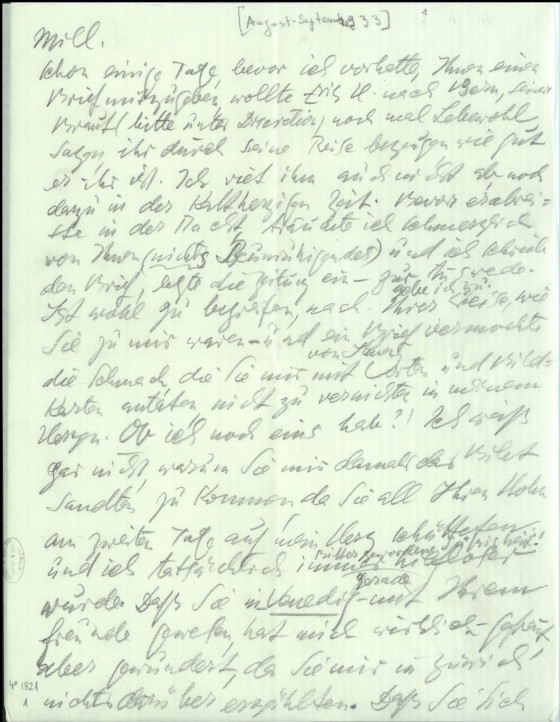 [August-September 33] 1
Mill.
Schon einige Tage, bevor ich vorhatte, Ihnen einen
Brief mitzugeben, wollte Eris U. nach Bern, seiner
Braut (bitte unter Discretion) noch mal Lebewohl
sagen ihr durch seine Reise bezeugen wie gut
er ihr ist. Ich riet ihm auch nicht ab noch
dazu in der kaltherzigen Zeit. Bevor er abrei=
ste in der Nacht, träumte ich schmerzlich
von Ihnen (nichts Beunruhigendes) und ich schrieb
den Brief, legte die Zeitung ein – zur
gebe ich zu.
Ist wohl zu begreifen, nach Ihrer Weise, wie
Sie zu mir waren – und ein Brief vermochte
die Schmach, die Sie mir mit Worten und Bild=
karten antaten nicht zu vernichten in meinem
Herzen. Ob ich noch eins hab?! Ich weiß
gar nicht, warum Sie mir damals das Billet
sandten zu kommen da Sie all Ihren Hohn
am zweiten Tage auf mein Herz schütteten
und ich tatsächlich immer
gerade
wurde. Daß Sie in Venedig mit Ihrem
Freunde gewesen hat mich wirklich gefreut,
aber gewundert, da Sie mir in Zürich
nichts darüber erzählten. Daß Sie sich
4° 1821
1